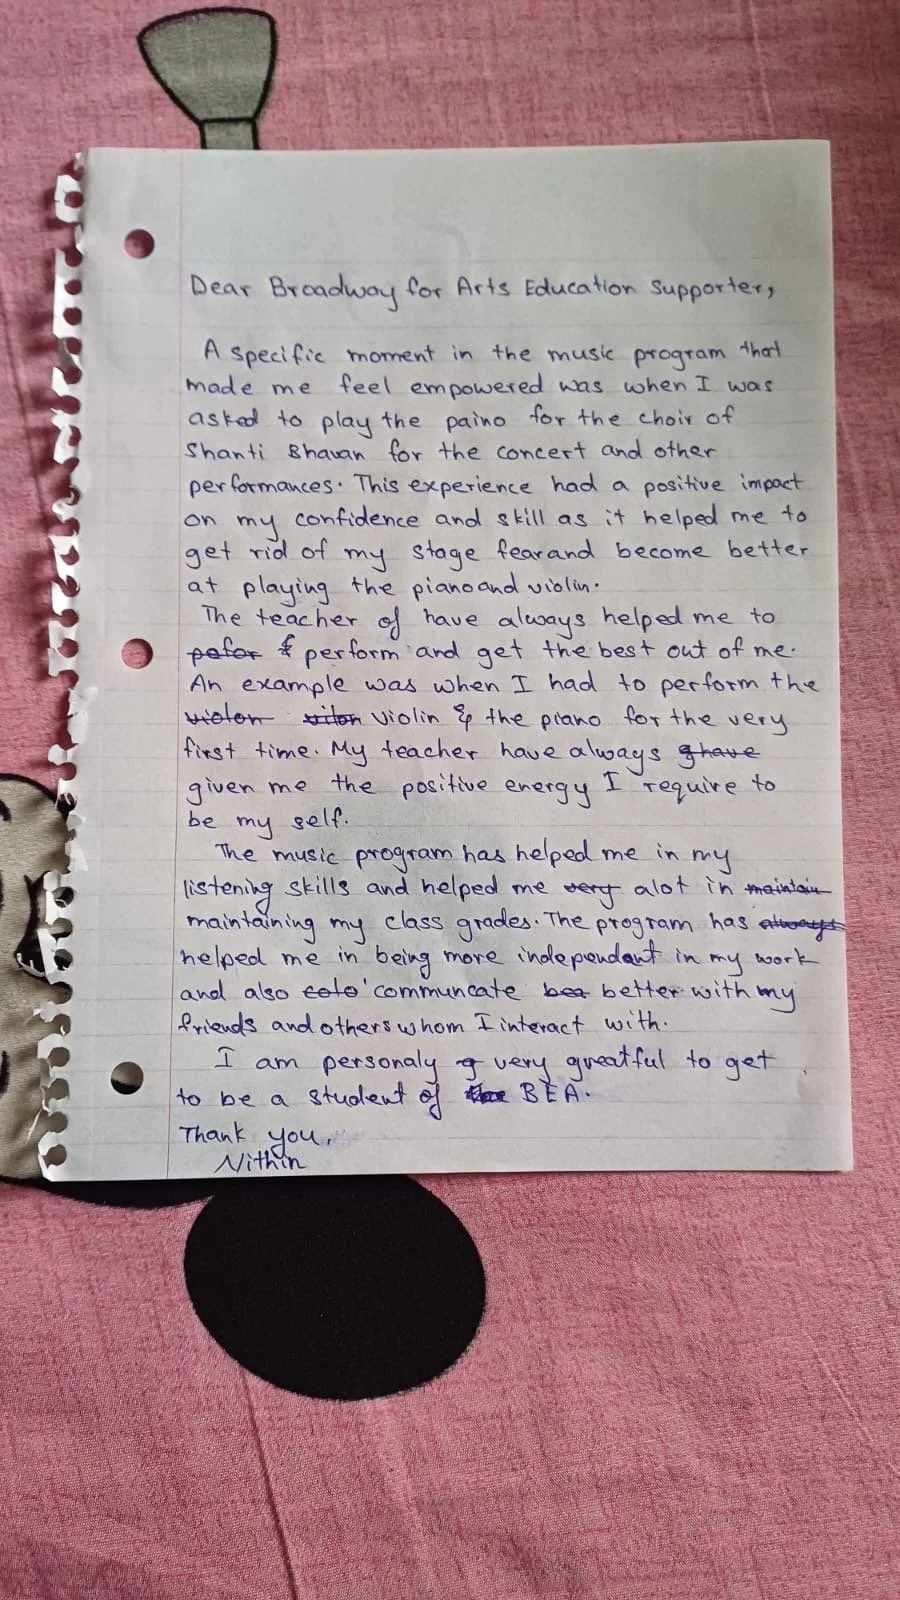 Dear Broadway for Arts Education Supporter,
A specific moment in the music program that
made me feel empowered was when I was
asked to play the paino for the choir of
Shanti Bhavan for the concert and other
performances. This experience had a positive impact
on my confidence and skill as it helped me to
get rid of my stage fear and become better
at playing the piano and violin.
The teacher of have always helped me to
pefor f perform and get the best out of me.
An example was when I had to perform the
violen vilon violin & the piano for the very
first time. My teacher have always ghave
given me the positive energy I require to
be my self.
The music program has helped me in my
listening skills and helped me very alot in maintain
maintaining my class grades. The program has always
helped me in being more independant in my work
and also coto communcate bea better with my
friends and others whom I interact with.
I am personaly g very greatful to get
to be a student of the BEA.
Thank you,
Nithin